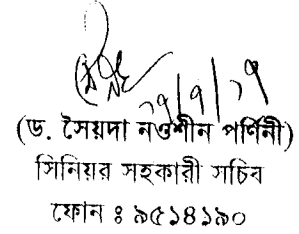 ২৭/৭/১৭
(ড. সৈয়দা নওশীন পর্ণিনী)
সিনিয়র সহকারী সচিব
ফোন ঃ ৯৫১৪১৯০